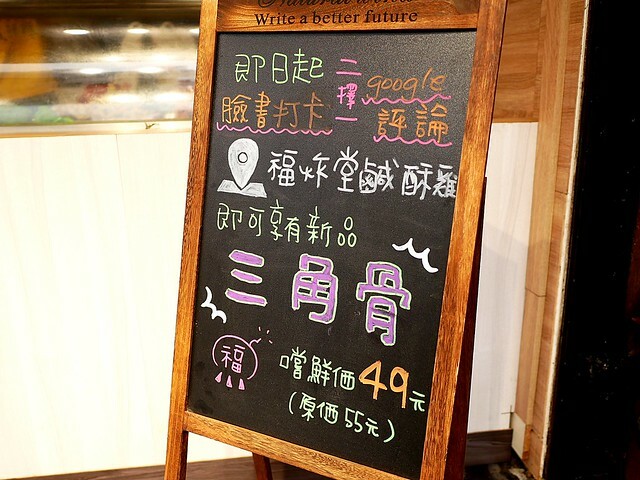 Write a better future
即日起
臉書打卡
二擇一
google
評論
福炸堂鹹酥雞
即可享有新品
三角骨
福
嚐鮮価49元
(原価55元)